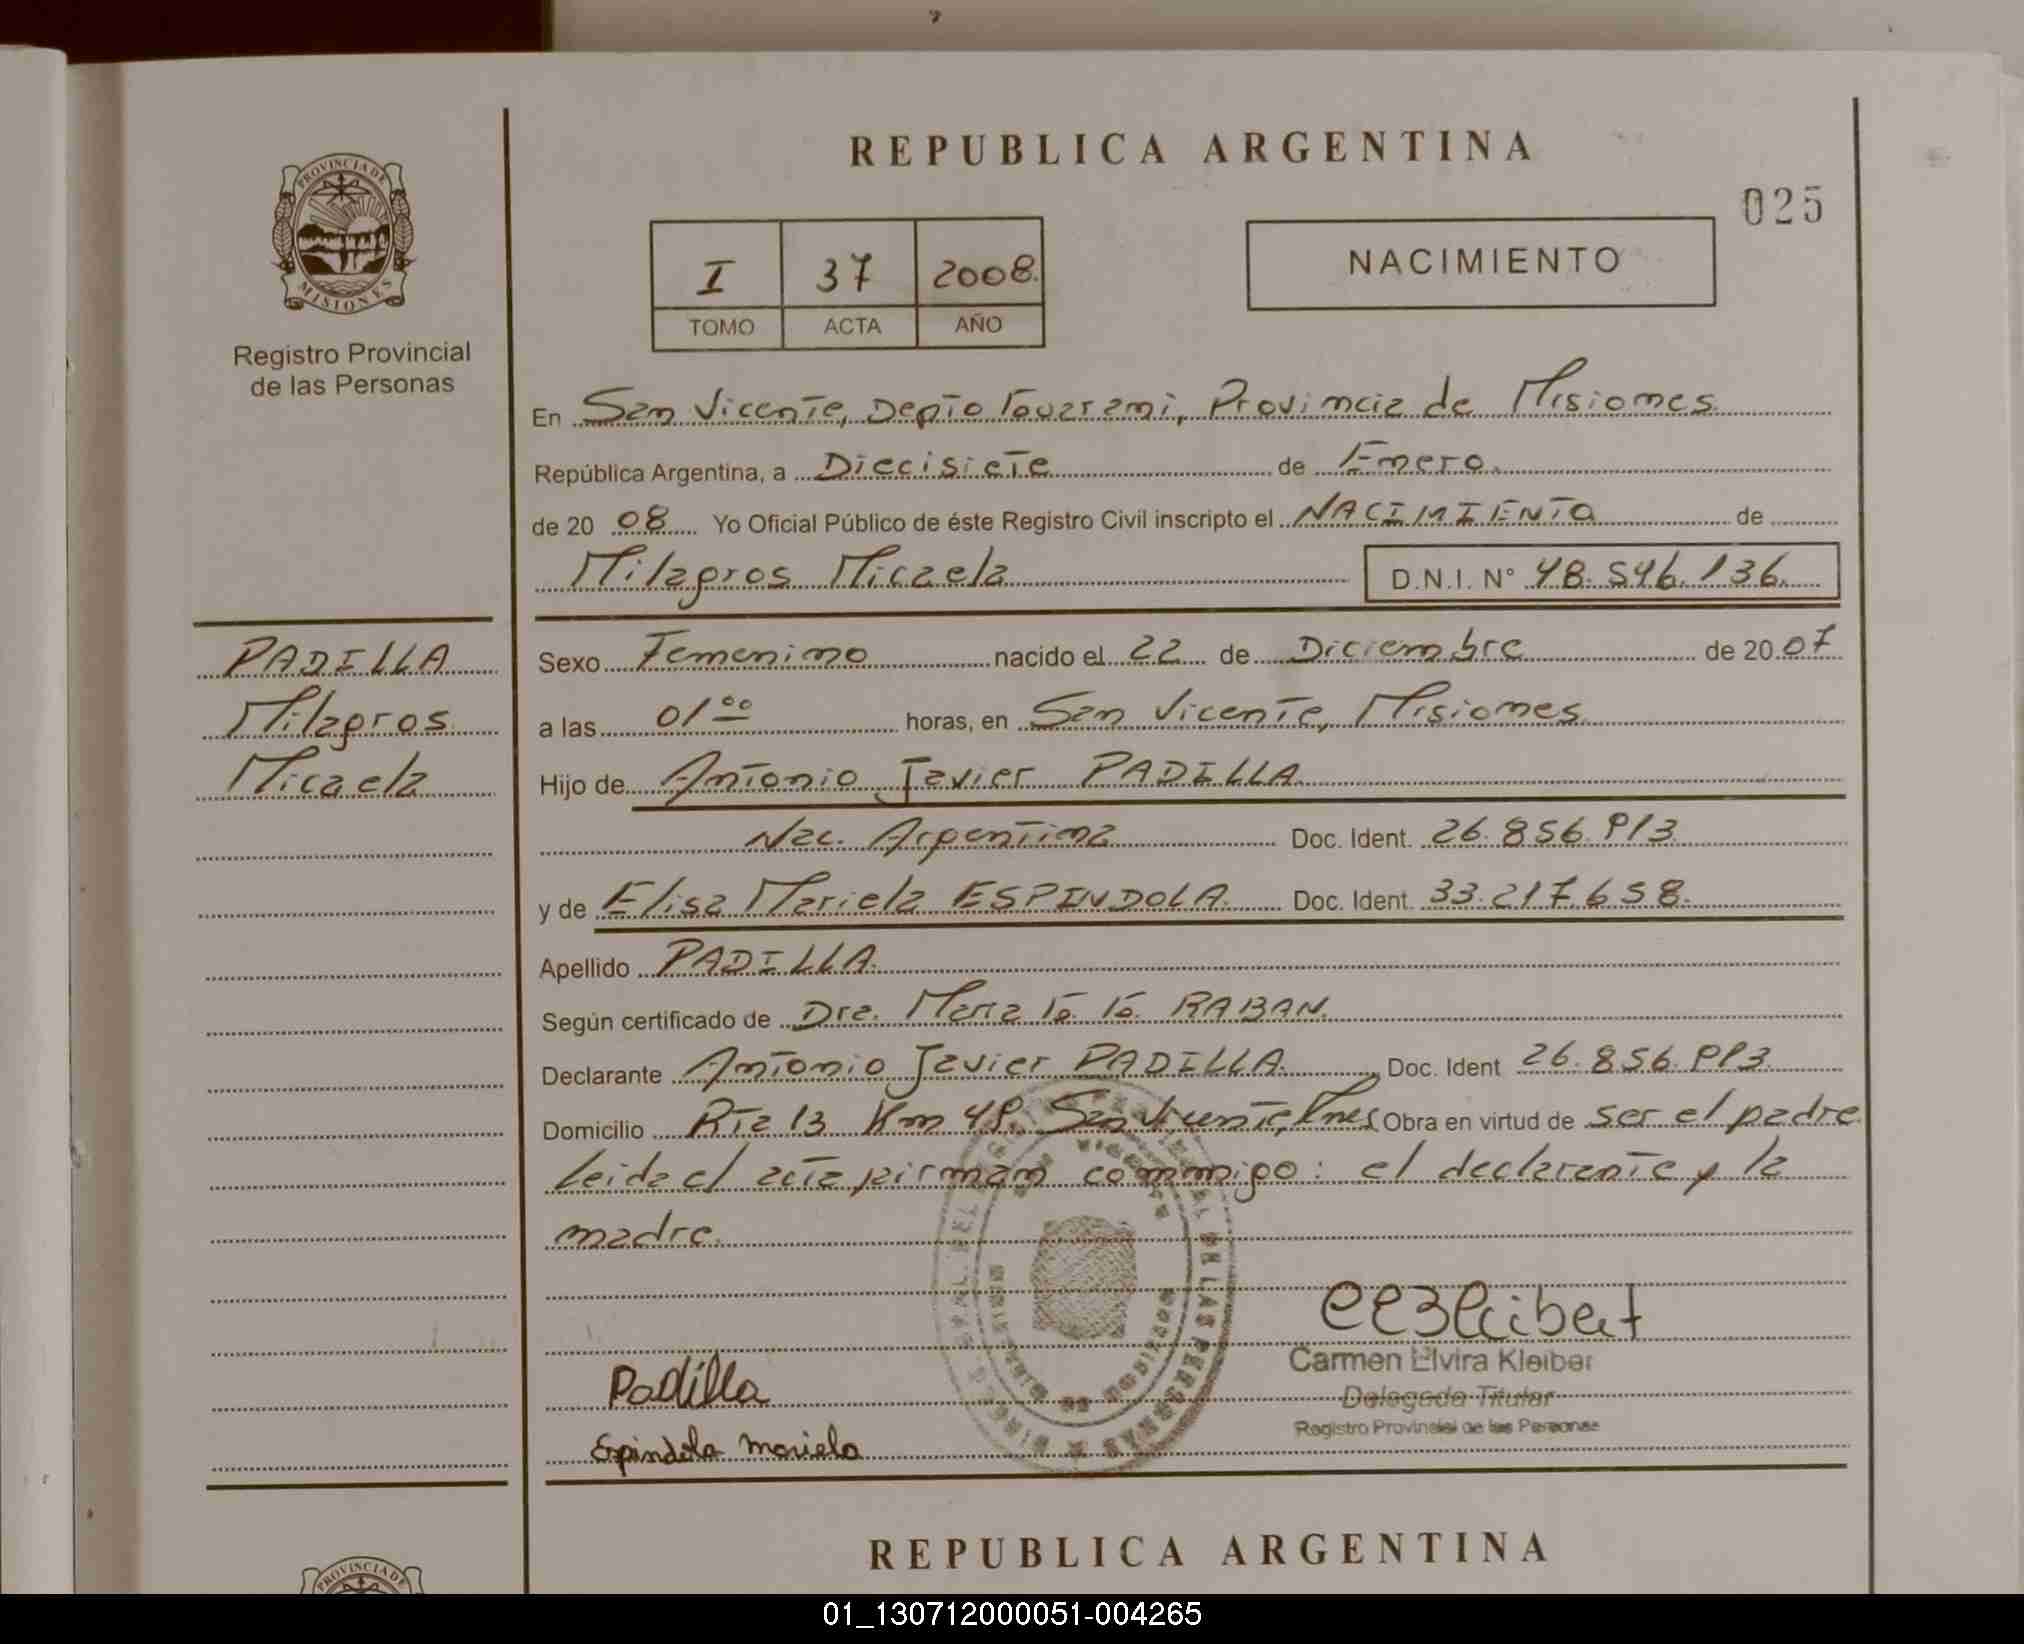 REPUBLICA ARGENTINA
025
PROVINCIA DE
MISIONES
Registro Provincial
de las Personas
I 37 2008.
TOMO ACTA AÑO
NACIMIENTO
En San Vicente, Depto Guarani, Provincia de Misiones
República Argentina, a Diecisiete de Enero
de 20 08 Yo Oficial Público de éste Registro Civil inscripto el NACIMIENTO de
Milagros Micaela D.N.I. N° 48.546.136
PADILLA
Milagros
Micaela
Sexo Femenino nacido el 22 de Diciembre de 20 07
a las 01 00 horas, en San Vicente, Misiones
Hijo de Antonio Javier PADILLA
Nac. Argentina Doc. Ident. 26.856.913
y de Elisa Mariela ESPINDOLA Doc. Ident. 33.217.658
Apellido PADILLA
Según certificado de Dra. Maria RABAN
Declarante Antonio Javier PADILLA Doc. Ident 26.856.913
Domicilio Rta 13 Km 49 San Vicente, Mnes Obra en virtud de ser el padre
Leida el acta firman conmigo: el declarante y la
madre.
Padilla
Espindola Mariela
Carmen Elvira Kleiber
Delegada Titular
Registro Provincial de las Personas
REPUBLICA ARGENTINA
PROVINCIA DE
01_130712000051-004265